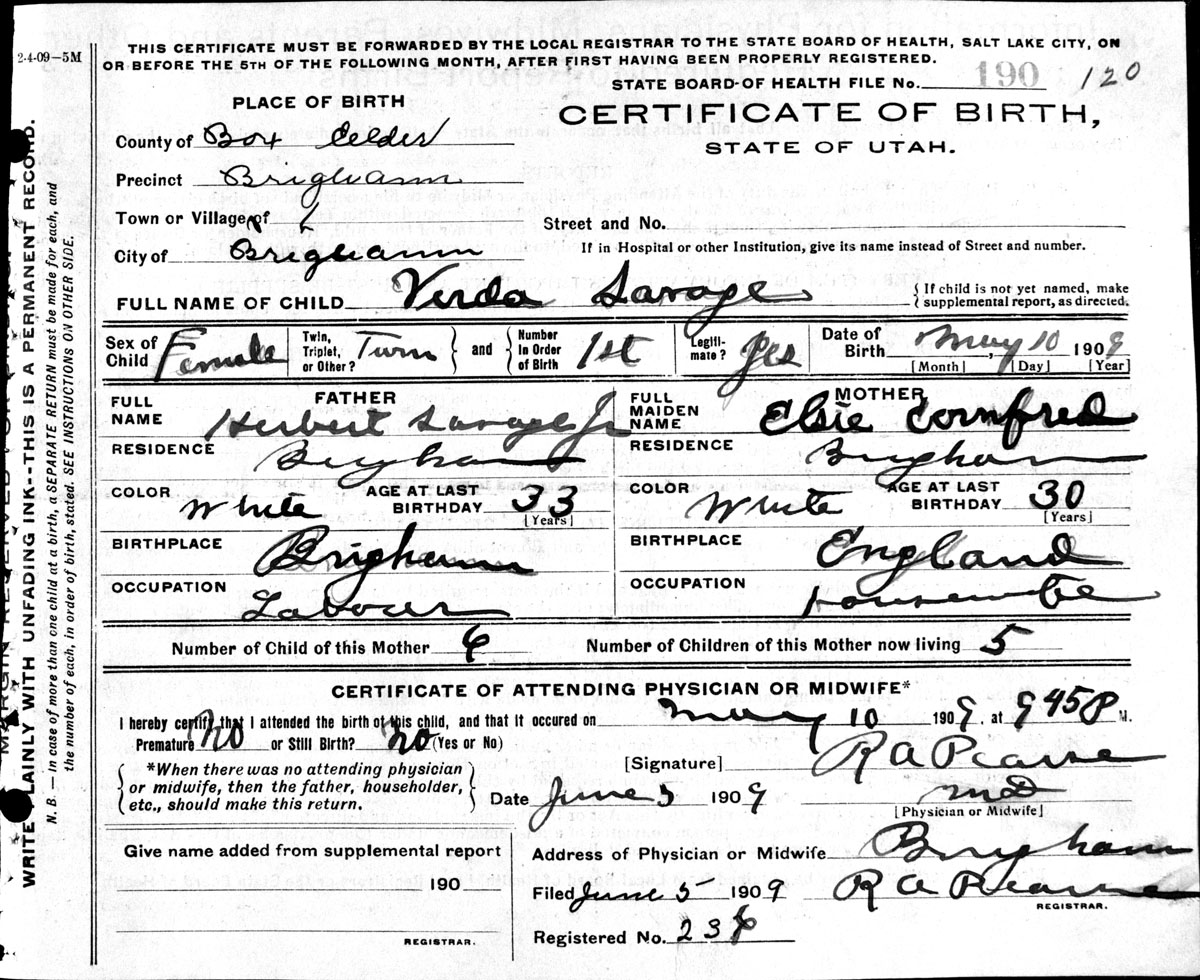 2-4-09—5M
THIS CERTIFICATE MUST BE FORWARDED BY THE LOCAL REGISTRAR TO THE STATE BOARD OF HEALTH, SALT LAKE CITY, ON
OR BEFORE THE 5TH OF THE FOLLOWING MONTH, AFTER FIRST HAVING BEEN PROPERLY REGISTERED.
STATE BOARD OF HEALTH FILE No. 190 120
PLACE OF BIRTH
CERTIFICATE OF BIRTH,
STATE OF UTAH.
County of Box Elder
Precinct Brigham
Town or Village of
Street and No.
City of Brigham
If in Hospital or other Institution, give its name instead of Street and number.
FULL NAME OF CHILD Verda Savage
{ If child is not yet named, make
supplemental report, as directed.
Sex of Child Female
Twin, Triplet, or Other? Twin } and { Number in Order of Birth 1st
Legiti-mate? Yes
Date of Birth May 10 1909
[Month] [Day] [Year]
FATHER
FULL NAME Herbert Savage Jr
RESIDENCE Brigham
COLOR White AGE AT LAST BIRTHDAY 33
[Years]
BIRTHPLACE Brigham
OCCUPATION Labourer
MOTHER
FULL MAIDEN NAME Elsie Cornfred
RESIDENCE Brigham
COLOR White AGE AT LAST BIRTHDAY 30
[Years]
BIRTHPLACE England
OCCUPATION Housewife
Number of Child of this Mother 6 Number of Children of this Mother now living 5
CERTIFICATE OF ATTENDING PHYSICIAN OR MIDWIFE*
I hereby certify that I attended the birth of this child, and that it occured on May 10 1909, at 9 45 P M.
Premature No or Still Birth? No (Yes or No)
[Signature] R A Pearse
{ *When there was no attending physician
or midwife, then the father, householder,
etc., should make this return. }
Date June 5 1909 MD
[Physician or Midwife]
Give name added from supplemental report
190
REGISTRAR.
Address of Physician or Midwife Brigham
Filed June 5 1909 R A Pearse
REGISTRAR.
Registered No. 23
MARGIN RESERVED FOR
WRITE PLAINLY WITH UNFADING INK--THIS IS A PERMANENT RECORD.
N. B.—in case of more than one child at a birth, a SEPARATE RETURN must be made for each, and
the number of each, in order of birth, stated. SEE INSTRUCTIONS ON OTHER SIDE.